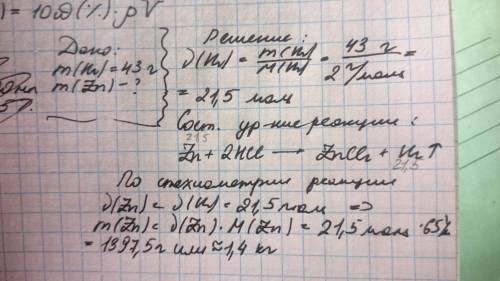 ) = 10ω(%)·ρV
Дано:
m(H₂) = 43 г
m(Zn) - ?
Решение:
ν(H₂) = m(H₂)/M(H₂) = 43 г/2 г/моль =
= 21,5 моль
Сост. ур-ние реакции:
21,5
Zn + 2HCl → ZnCl₂ + H₂↑
21,5
По стехиометрии реакции
ν(Zn) = ν(H₂) = 21,5 моль =>
m(Zn) = ν(Zn)·M(Zn) = 21,5 моль · 65 г/
= 1397,5 г или ≈ 1,4 кг